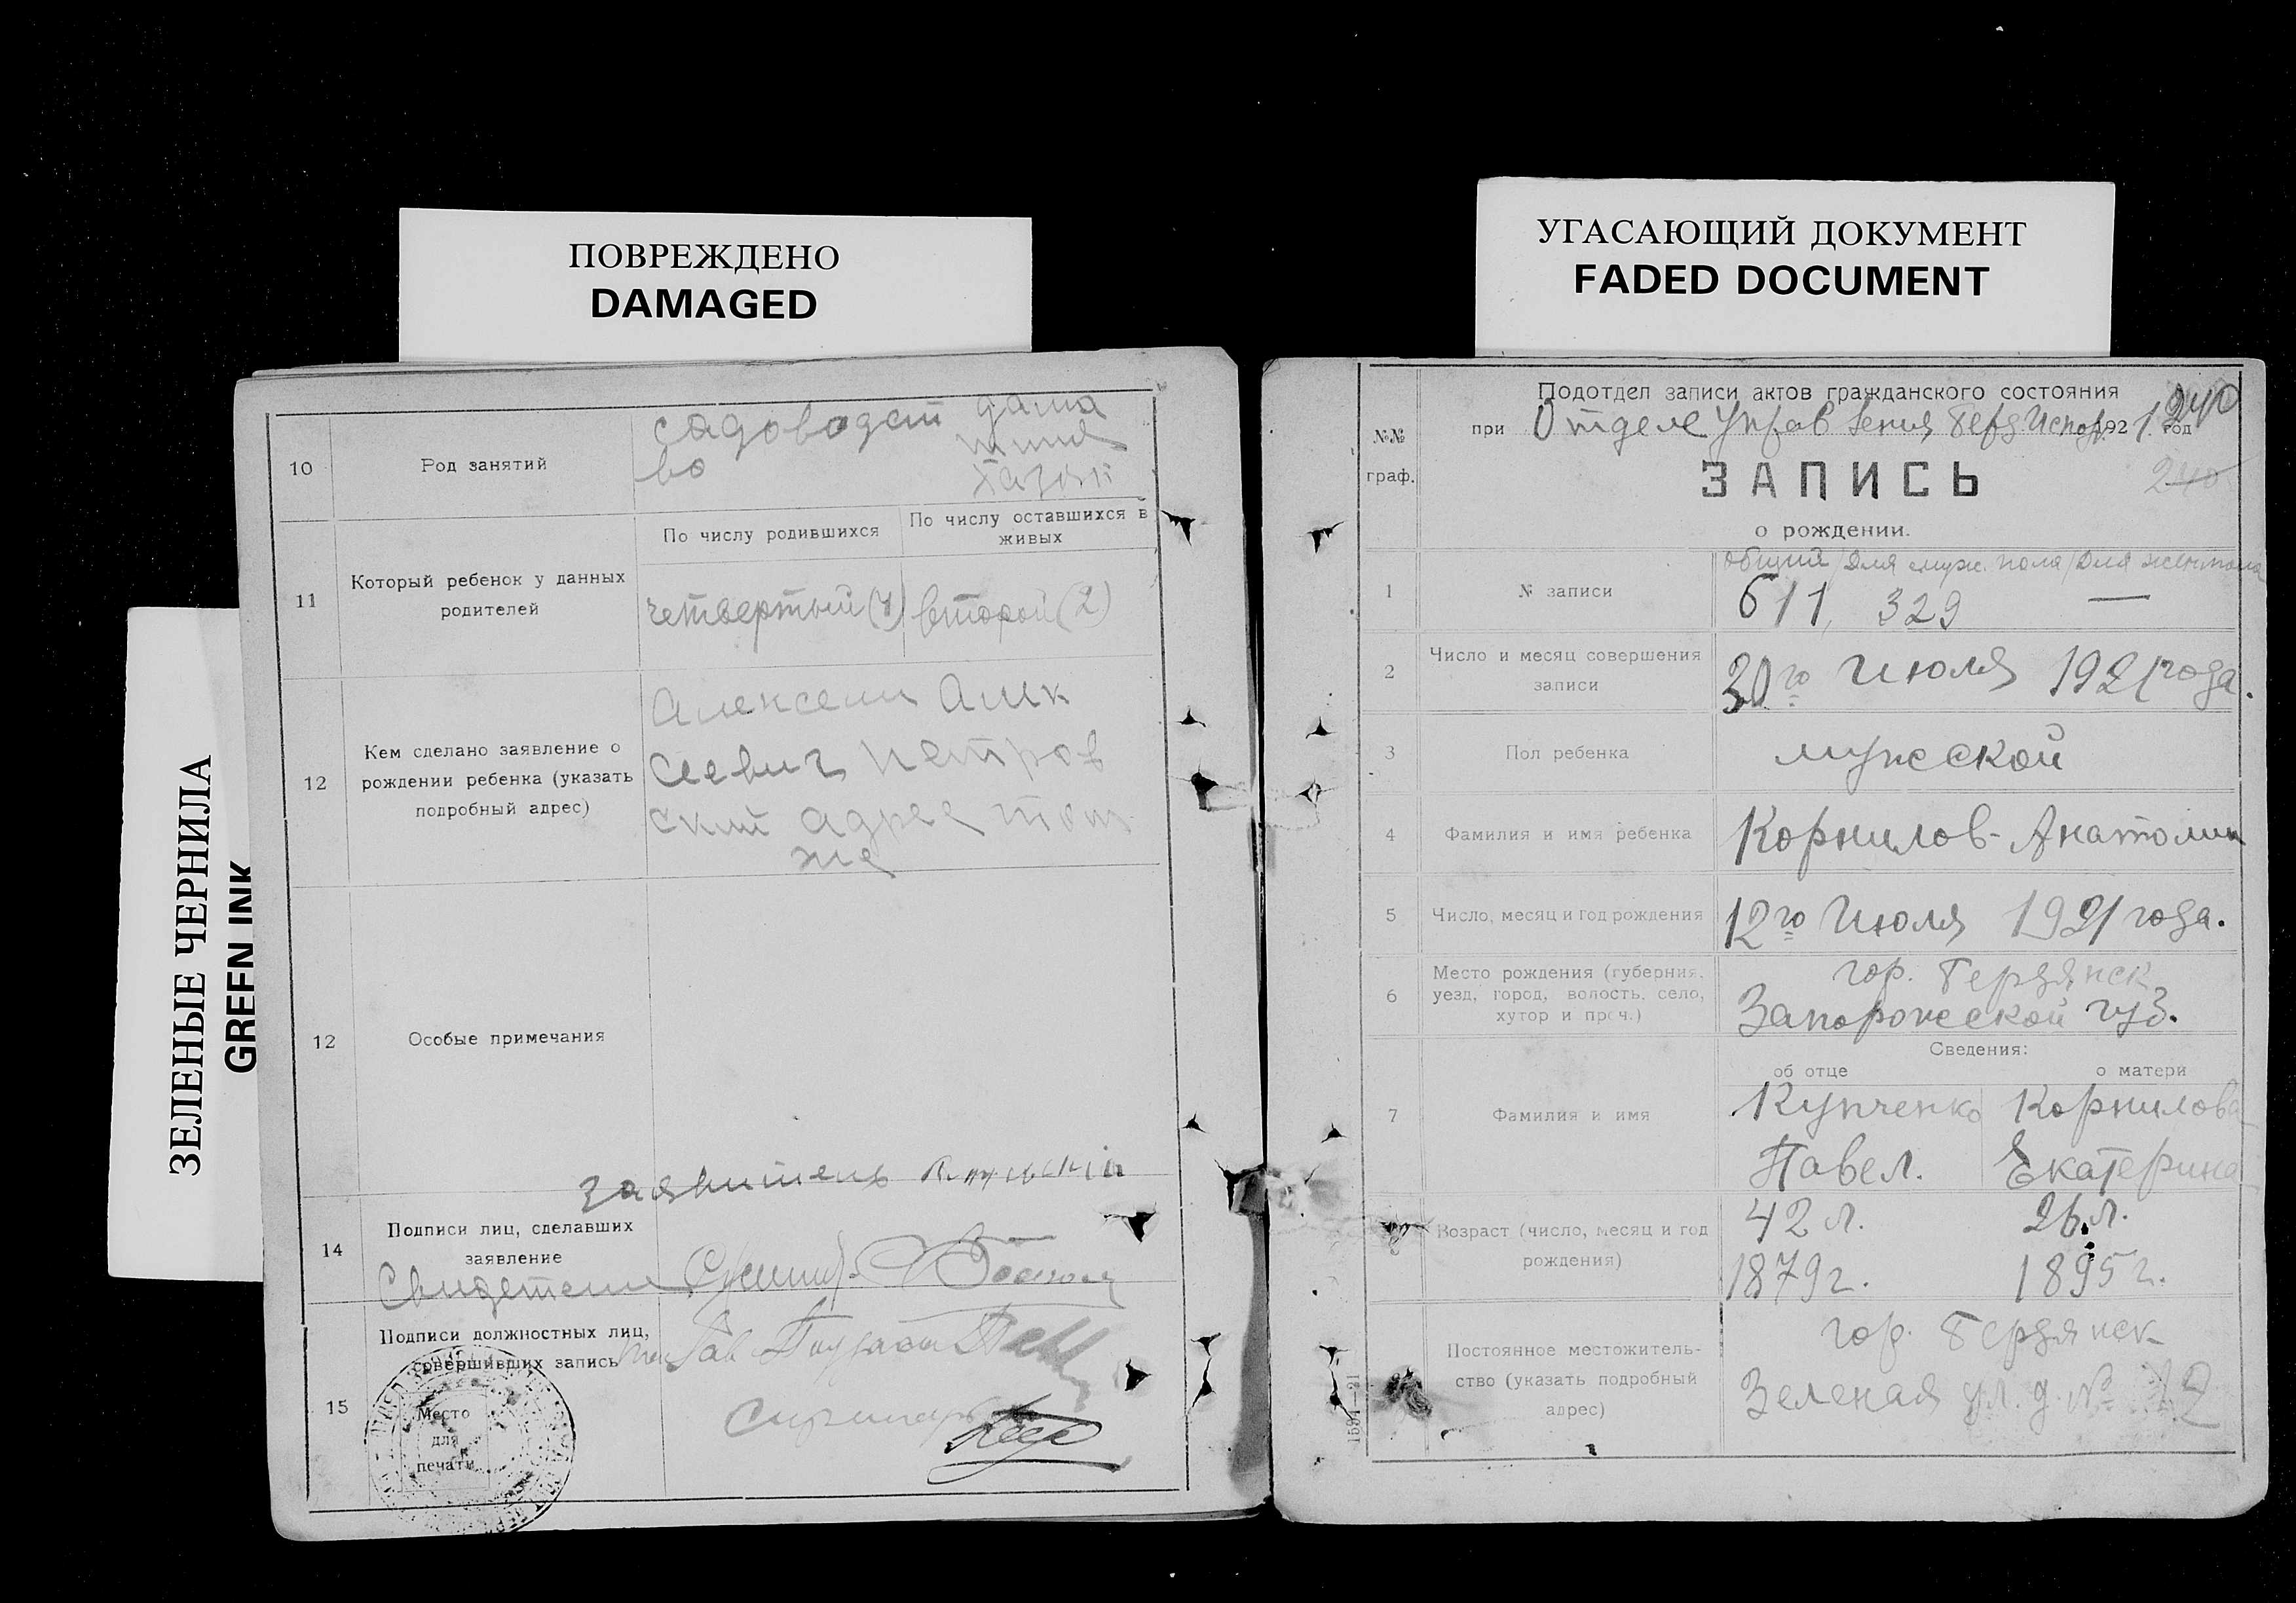 ПОВРЕЖДЕНО
DAMAGED
УГАСАЮЩИЙ ДОКУМЕНТ
FADED DOCUMENT
ЗЕЛЕНЫЕ ЧЕРНИЛА
GREEN INK
10
Род занятий
садоводст
во
11
Который ребенок у данных
родителей
По числу родившихся
По числу оставшихся в
живых
четвертый (4)
второй (2)
12
Кем сделано заявление о
рождении ребенка (указать
подробный адрес)
Алексеем Алек
сеевич Петров
ский адрес тот
же
12
Особые примечания
заявитель
14
Подписи лиц, сделавших
заявление
Свидетели
15
Подписи должностных лиц,
совершивших запись
Место
для
печати
№№
граф.
Подотдел записи актов гражданского состояния
240
при Отделе Управления Берд 1921 год
ЗАПИСЬ
240
о рождении.
1
№ записи
общий / Для муж. пола / Для жен. пола
611, 329 —
2
Число и месяц совершения
записи
30го Июля 1921 года.
3
Пол ребенка
мужской
4
Фамилия и имя ребенка
Корнилов - Анатолии
5
Число, месяц и год рождения
12го Июля 1921 года.
6
Место рождения (губерния,
уезд, город, волость, село,
хутор и проч.)
гор. Бердянск
Запорожской губ.
Сведения:
об отце
о матери
7
Фамилия и имя
Купченко
Павел.
Корнилова
Екатерина
Возраст (число, месяц и год
рождения)
42 л.
1879 г.
26 л.
1895 г.
Постоянное местожитель-
ство (указать подробный
адрес)
гор. Бердянск
Зеленая ул. д. №
1591—21